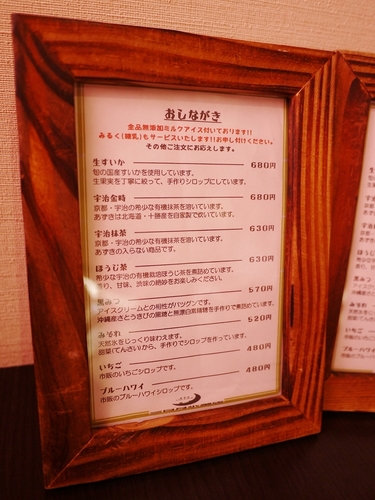 おしながき
全品無添加ミルクアイス付いております!!
みるく(練乳)もサービスいたします!!お申し付けください。
その他ご注文にお応えします。
生すいか 680円
旬の国産すいかを使用しています。
生果実を丁寧に絞って、手作りシロップにしています。
宇治金時 680円
京都・宇治の希少な有機抹茶を溶いています。
あずきは北海道・十勝産を自家製で炊いています。
宇治抹茶 630円
京都・宇治の希少な有機抹茶を溶いています。
あずきの入らない商品です。
ほうじ茶 630円
希少な宇治の有機栽培ほうじ茶を煮詰めています。
香り、甘味、渋味の絶妙をお楽しみください。
黒みつ 570円
アイスクリームとの相性がバツグンです。
沖縄産さとうきびの黒糖と無漂白素精糖を手作りで煮詰めています。
みぞれ 520円
天然氷をじっくり味わえます。
甜菜(てんさい)から、手作りでシロップを作っています。
いちご 480円
市販のいちごシロップです。
ブルーハワイ 480円
市販のブルーハワイシロップです。